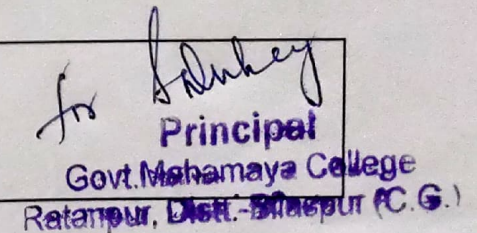 for
Principal
Govt. Mahamaya College
Ratanpur, Distt.-Bilaspur (C.G.)